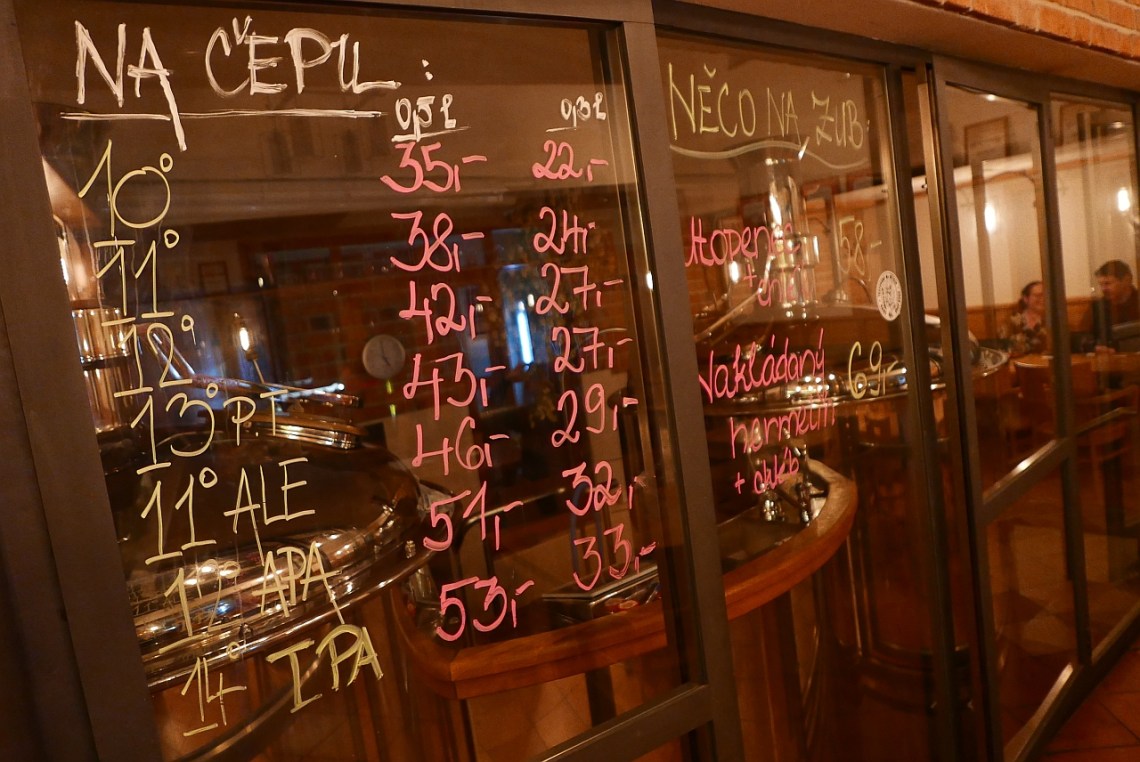 NA ČEPU:
0,5l 0,3l
10° 35,- 22,-
11° 38,- 24,-
12° 42,- 27,-
13° P.T 43,- 27,-
11° ALE 46,- 29,-
APA 51,- 32,-
14° IPA 53,- 33,-
NĚCO NA ZUB:
58,-
+
Nakládaný 69,-
hermelín
+ chléb